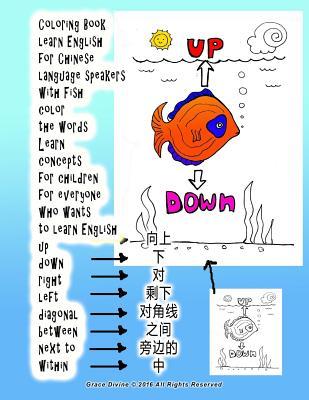 Coloring Book
learn English
For Chinese
language speakers
With Fish
color
the words
Learn
concepts
For children
For everyone
Who Wants
to learn English
up 向上
down 下
right 对
left 剩下
diagonal 对角线
between 之间
next to 旁边的
within 中
UP
DOWN
UP
DOWN
Grace Divine © 2016 All Rights Reserved